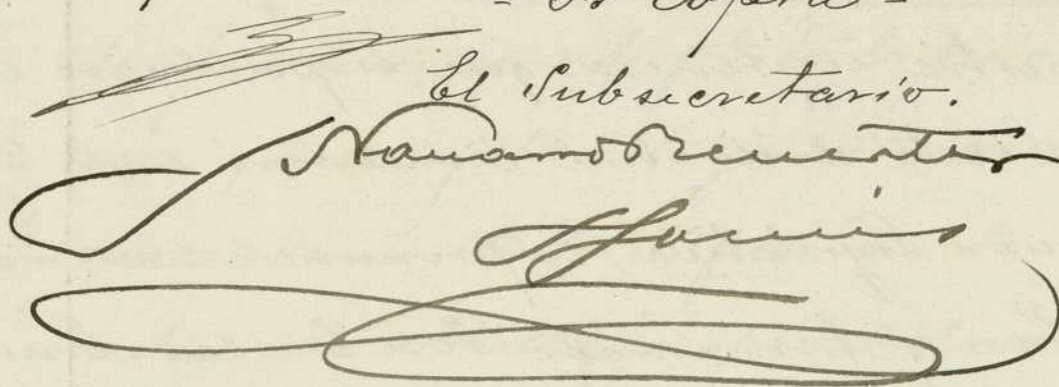 - Es copia -
El Subsecretario.
J Navarro Reverter
Gomis